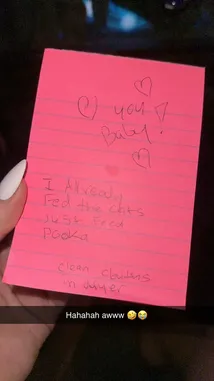 ♡ you!
Baby!
I Already
Fed the cats
Just Feed
Pooka
clean clothes
in dryer
Hahahah awww 🤣😂